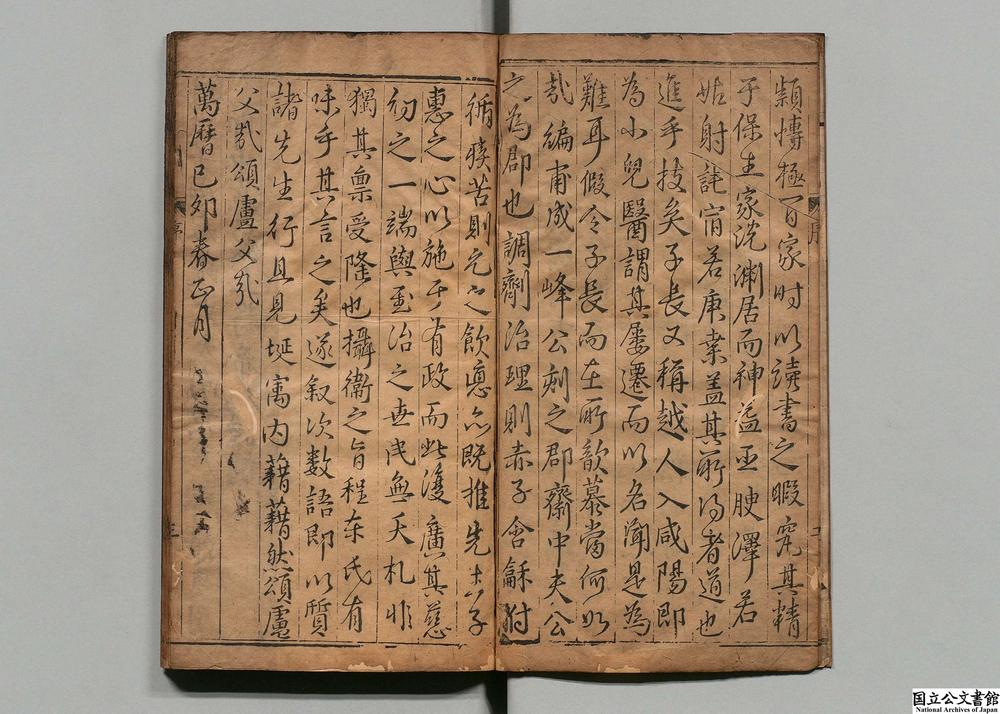 穎慱極百家時以讀書之暇究其精
于保生家沈淵居而神益王腴澤若
姑射詫宵若庚業盖其所得者道也
進乎技矣子長又稱越人入咸陽即
為小兒醫謂其屢遷而以名聞是為
難耳假令子長而在所歆慕當何如
哉編甫成一峰公刻之郡齋中夫公
之為郡也調劑治理則赤子含龢附
循瘼苦則元之飲悳亦既推先
惠之心以施于有政而此復廣其慈
幼之一端與至治之世民無夭札非
獨其禀受隆也攝衛之旨程
味乎其言之矣遂叙次數語即以質
諸先生行且見埏寓内藉藉然頌盧
父哉頌盧父哉
萬曆己卯春正月
序
三
国立公文書館
National Archives of Japan